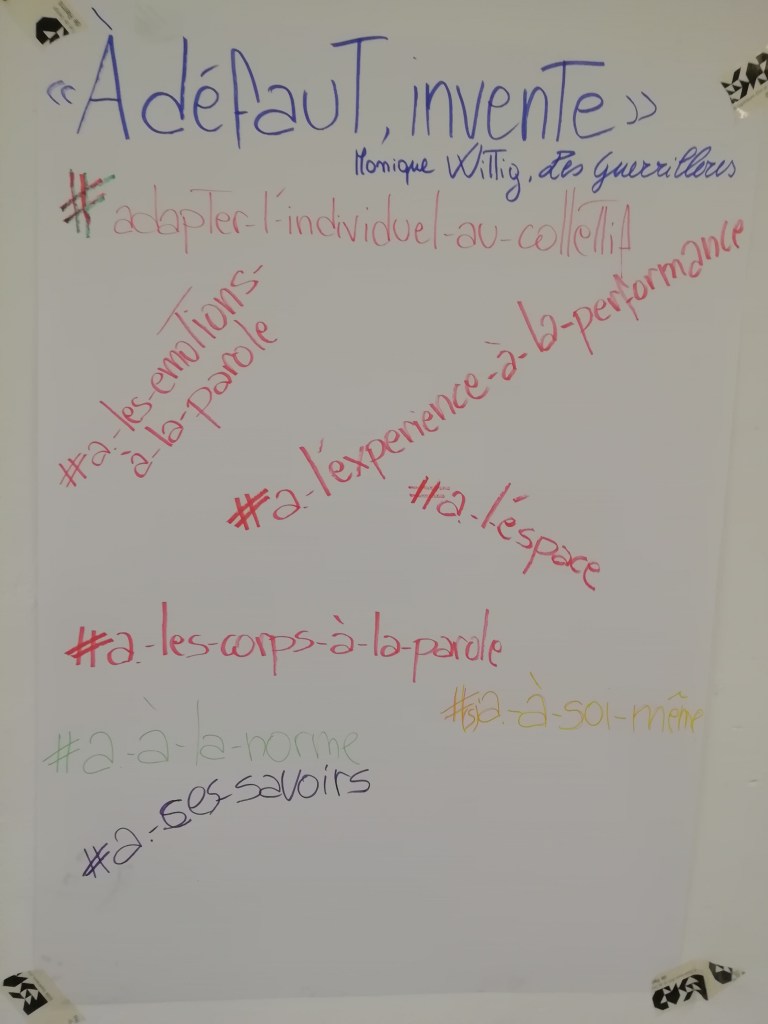 « À défaut, invente »
Monique Wittig, Les Guerrillères
#adapter-l'individuel-au-collettif
#a.-les-emotions-
à-la-parole
#a.-l'éxperience-à-la-performance
#a.-l'éspace
#a.-les-corps-à-la-parole
#(s)a.-à-soi-même
#a.-à-la-norme
#a.-ses-savoirs